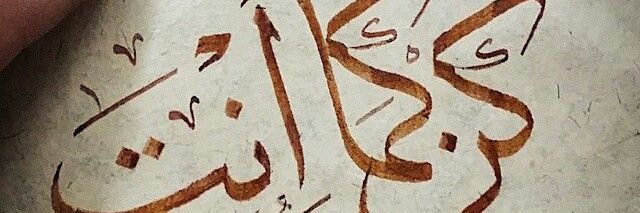 كن كما أنت